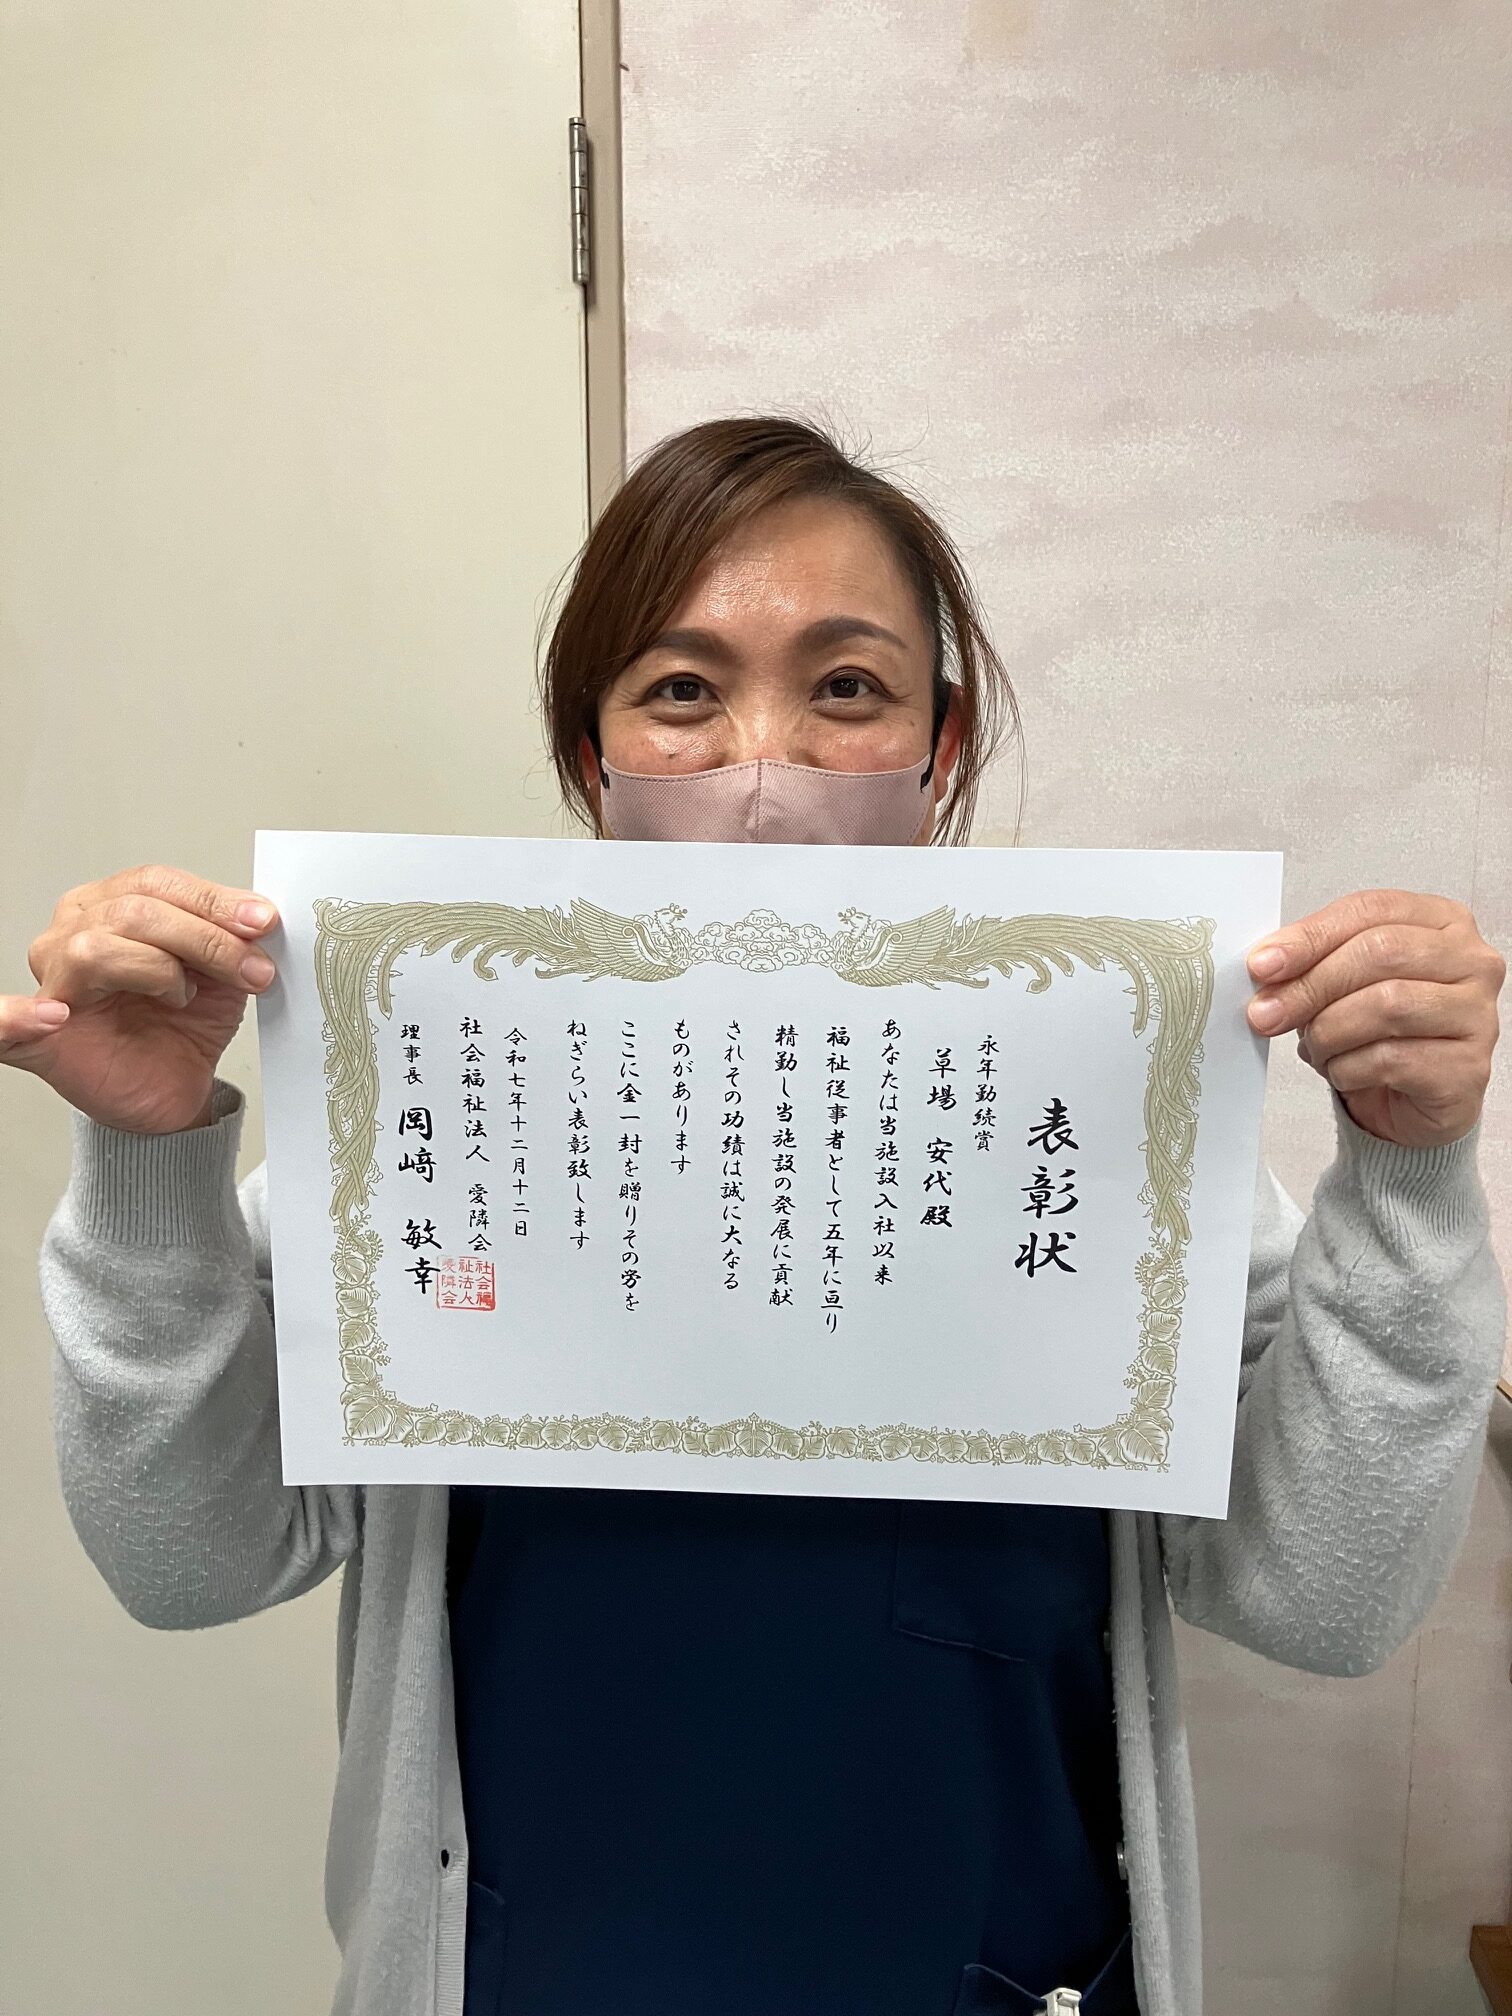 表彰状
永年勤続賞
草場 安代殿
あなたは当施設入社以来
福祉従事者として五年に亘り
精勤し当施設の発展に貢献
されその功績は誠に大なる
ものがあります
ここに金一封を贈りその労を
ねぎらい表彰致します
令和七年十二月十二日
社会福祉法人 愛隣会
理事長 岡﨑 敏幸
社会福
祉法人
愛隣会